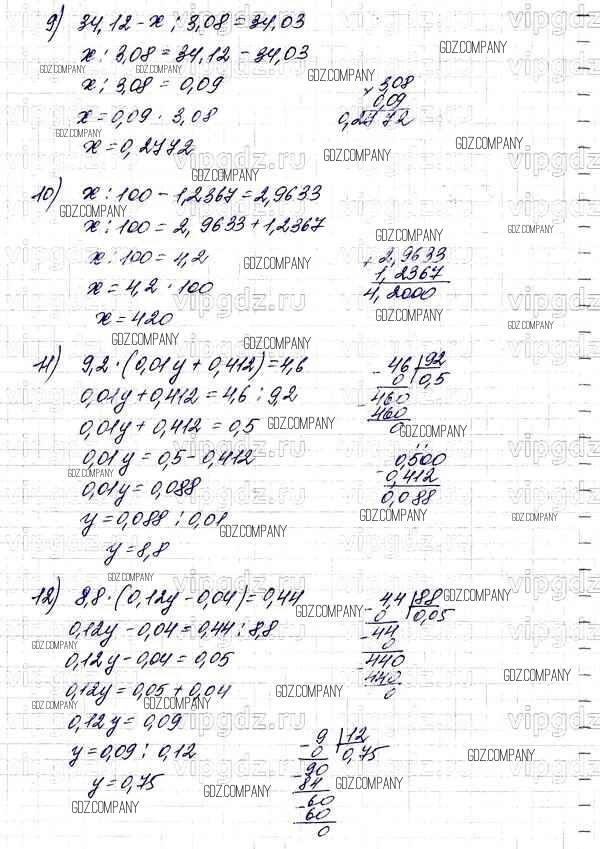 9) 34,12 - x : 3,08 = 34,03
x : 3,08 = 34,12 - 34,03
x : 3,08 = 0,09
x = 0,09 · 3,08
x = 0,2772
× 3,08
0,09
0,2772
10) x : 100 - 1,2367 = 2,9633
x : 100 = 2,9633 + 1,2367
x : 100 = 4,2
x = 4,2 · 100
x = 420
+ 2,9633
1,2367
4,2000
11) 9,2 · (0,01y + 0,412) = 4,6
0,01y + 0,412 = 4,6 : 9,2
0,01y + 0,412 = 0,5
0,01y = 0,5 - 0,412
0,01y = 0,088
y = 0,088 : 0,01
y = 8,8
- 46 | 92
0 | 0,5
- 460
460
0
- 0,500
0,412
0,088
12) 8,8 · (0,12y - 0,04) = 0,44
0,12y - 0,04 = 0,44 : 8,8
0,12y - 0,04 = 0,05
0,12y = 0,05 + 0,04
0,12y = 0,09
y = 0,09 : 0,12
y = 0,75
- 4,4 | 88
0 | 0,05
- 44
0
- 440
440
0
- 9 | 12
0 | 0,75
- 90
84
- 60
60
0
GDZ.COMPANY
vipgdz.ru